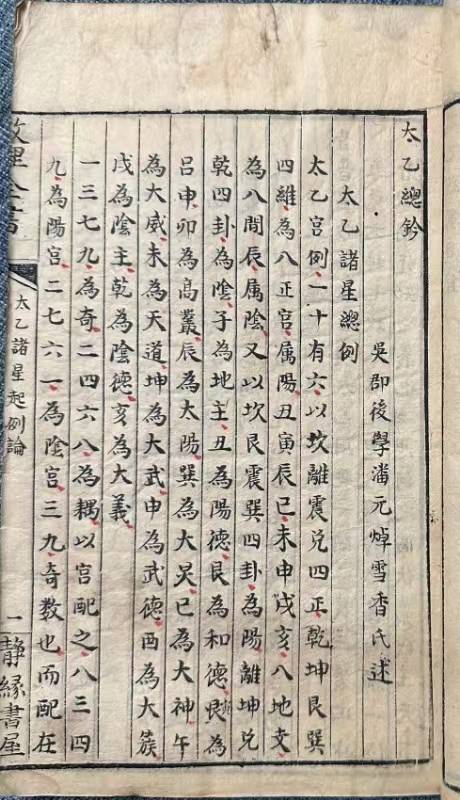 太乙總鈐
吳郡後學潘元焯雪香氏述
太乙諸星總例
太乙宫例一十有六以坎離震兌四正乾坤艮巽
四維為八正宫属陽丑寅辰巳未申戌亥八地支
為八間辰属陰又以坎艮震巽四卦為陽離坤兌
乾四卦為陰子為地主丑為陽德艮為和德寅為
吕申卯為高叢辰為太陽巽為大炅巳為大神午
為大威未為天道坤為大武申為武德酉為大簇
戌為陰主乾為陰德亥為大義
一三七九為奇二四六八為耦以宫配之八三四
九為陽宫二七六一為陰宫三九奇数也而配在
数理全書
太乙諸星起例論
一
静緣書屋